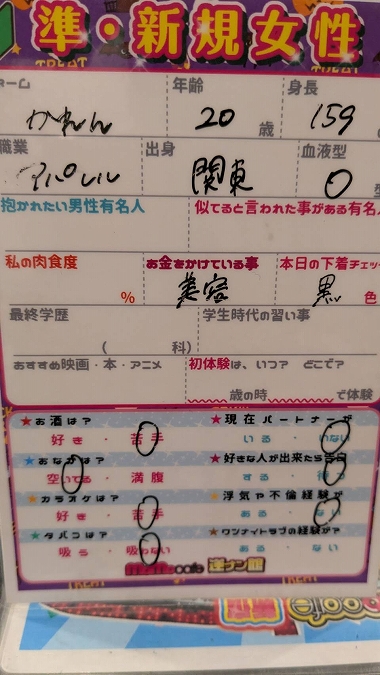 準・新規女性
TREAT TREAT
ネーム 年齢 身長
かれん 20 歳 159
職業 出身 血液型
アパレル 関東 O 型
抱かれたい男性有名人 似てると言われた事がある有名人
私の肉食度 お金をかけている事 本日の下着チェック
% 美容 黒 色
最終学歴 学生時代の習い事
( 科)
おすすめ映画・本・アニメ 初体験は、いつ? どこで?
歳の時 で体験
★お酒は? ★現在パートナーが
好き・苦手 いる・いない
★おなかは? ★好きな人が出来たら告白
空いてる・満腹 する・待つ
★カラオケは? ★浮気や不倫経験が
好き・苦手 ある・ない
★タバコは? ★ワンナイトラブの経験が?
吸う・吸わない ある・ない
cafe 逆ナン館
TREAT TREAT